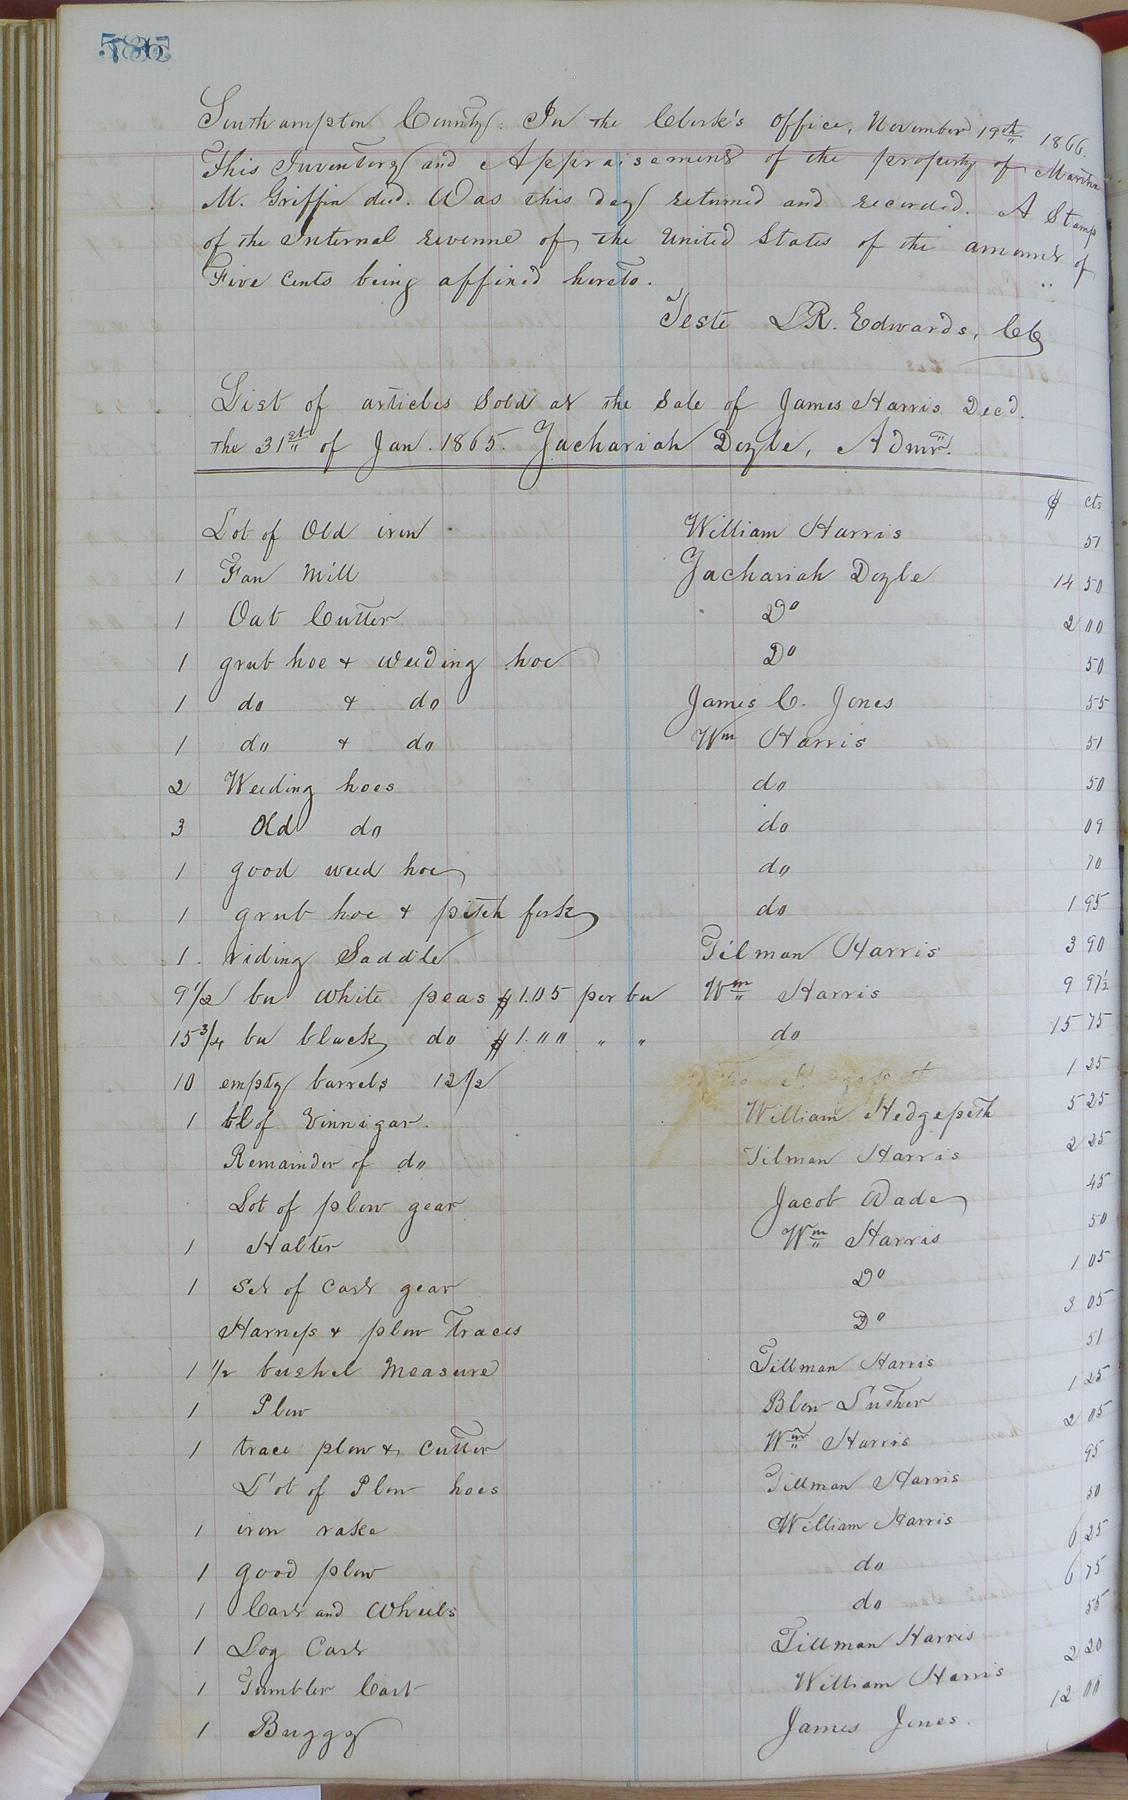 Southampton County. In the Clerk's Office, November 19th 1866.
This Inventory and Appraisement of the property of Martha
M. Griffin decd. Was this day returned and recorded. A Stamp
of the Internal revenue of the United States of the amount of
Five Cents being affixed hereto.
Teste L R. Edwards, CC
List of articles Sold at the Sale of James Harris Decd.
the 31st of Jan. 1865. Zachariah Doyle, Admr.
$ cts
Lot of Old iron William Harris 51
1 Fan Mill Zachariah Doyle 14 50
1 Oat Cutter Do 2 00
1 grub hoe & weeding hoe Do 50
1 do & do James C. Jones 55
1 do & do Wm Harris 51
2 Weeding hoes do 50
3 Old do do 09
1 good weed hoe do 70
1 grub hoe & pitch fork do 1 95
1 riding Saddle Tilman Harris 3 90
9 1/2 bu white peas $1.05 per bu Wm Harris 9 97 1/2
15 3/4 bu black do $1.00 " " do 15 75
10 empty barrels 12 1/2 1 25
1 bl of Vinnigar. William Hedgepeth 5 25
Remainder of do Tilman Harris 2 25
Lot of plow gear Jacob Wade 45
1 Halter Wm Harris 50
1 Set of Cart gear Do 1 05
Harness & plow Traces Do 3 05
1 1/2 bushel Measure Tillman Harris 51
1 Plow Blow Luther 1 25
1 trace plow & Cutter Wm Harris 2 05
Lot of Plow hoes Tillman Harris 95
1 iron rake William Harris 50
1 good plow do 6 25
1 Cart and Wheels do 6 75
1 Log Cart Tillman Harris 55
1 Tumbler Cart William Harris 2 20
1 Buggy James Jones. 12 00